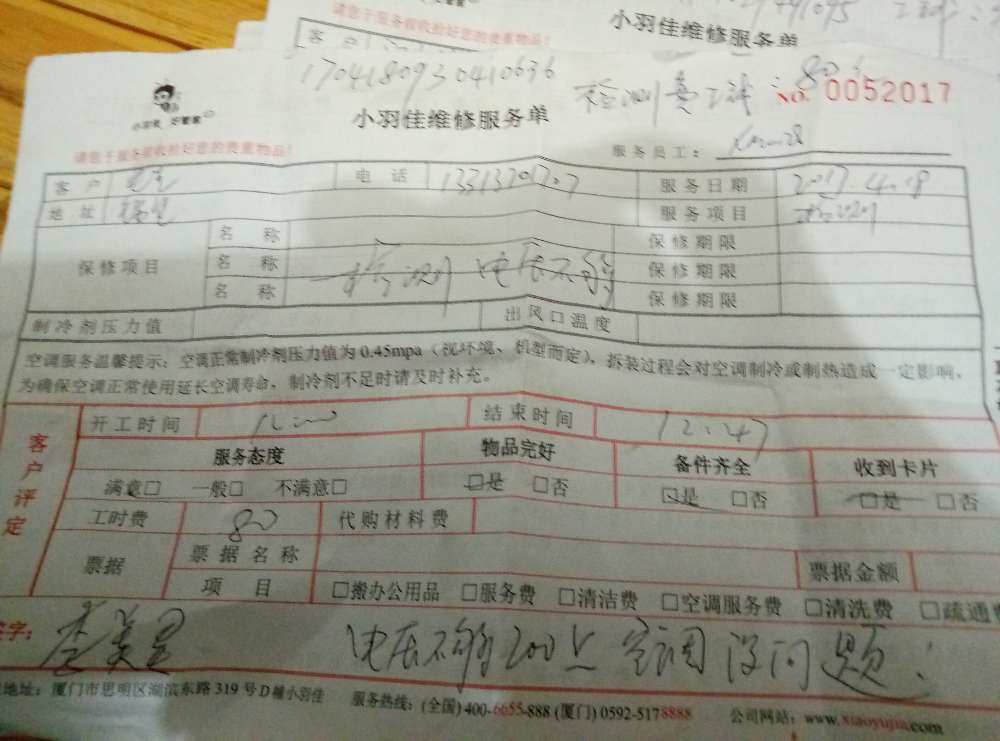 请您于服务前收拾好您的贵重物品!
小羽佳维修服务单
客户
170418093041​0636
检测费工钱:80元
NO. 0052017
小羽佳 好管家
小羽佳维修服务单
请您于服务前收拾好您的贵重物品!
服务员工:
客户 电话 服务日期 2017.4.18
地址 服务项目 检测
保修项目 名称 保修期限
名称 检测 电压不够 保修期限
名称 保修期限
制冷剂压力值 出风口温度
空调服务温馨提示:空调正常制冷剂压力值为0.45mpa(视环境、机型而定),拆装过程会对空调制冷或制热造成一定影响,
为确保空调正常使用延长空调寿命,制冷剂不足时请及时补充。
客户评定
开工时间 结束时间 12:47
服务态度 物品完好 备件齐全 收到卡片
满意□ 一般□ 不满意□ □是 □否 □是 □否 □是 □否
工时费 80 代购材料费
票据 票据名称 票据金额
项目 □搬办公用品 □服务费 □清洁费 □空调服务费 □清洗费 □疏通
签字: 电压不够200上 空调没问题;
地址:厦门市思明区湖滨东路319号D幢小羽佳 服务热线:(全国)400-6655-888 (厦门)0592-5178888 公司网站:www.xiaoyujia.com